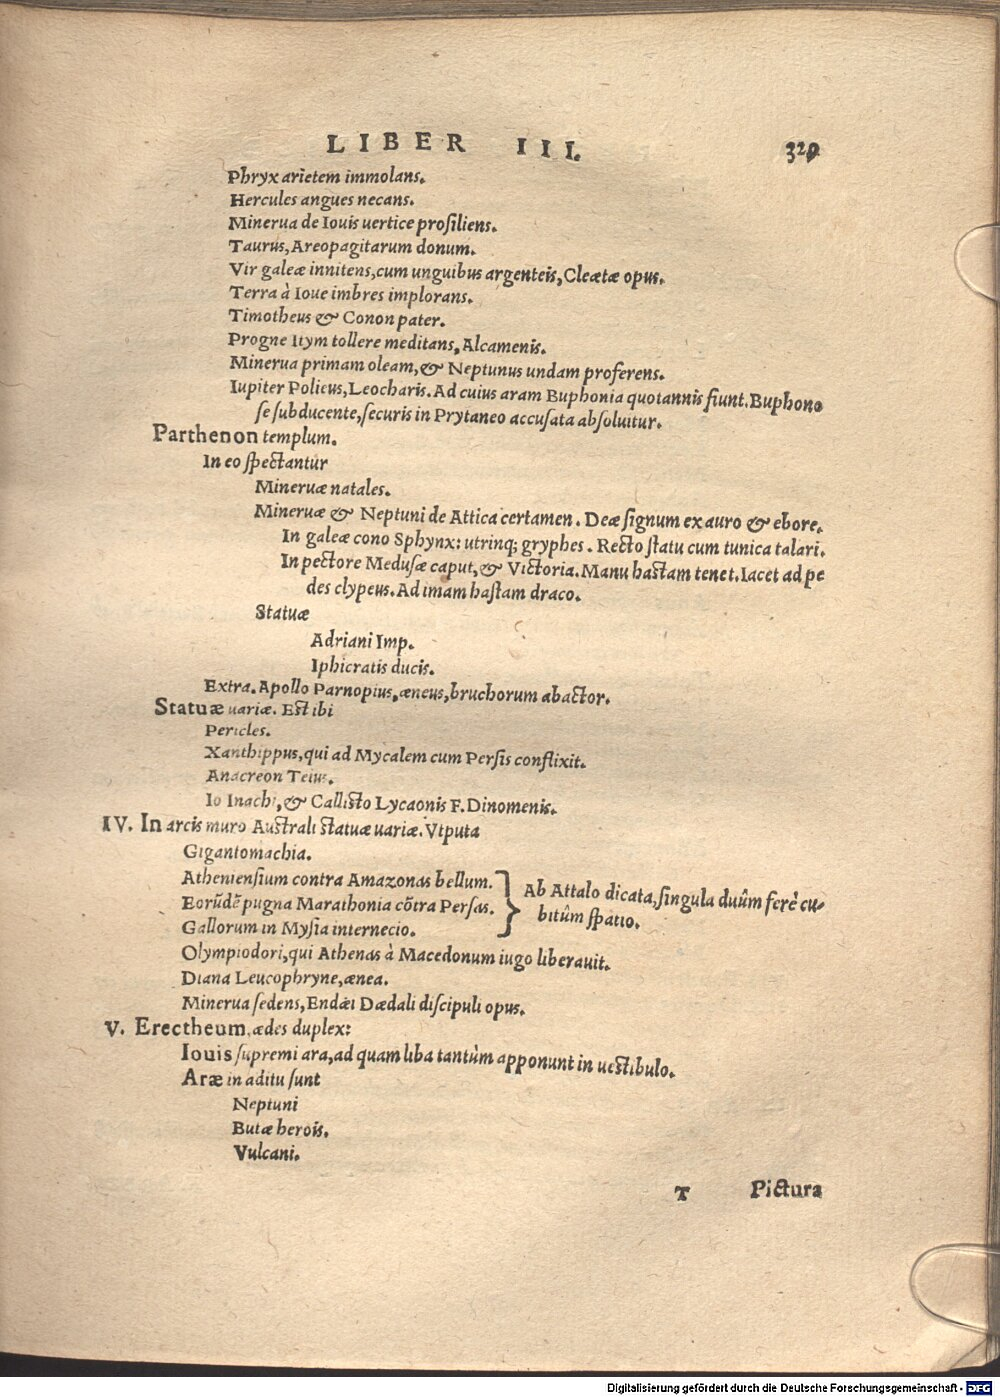 LIBER III. 329
Phryx arietem immolans.
Hercules angues necans.
Minerua de Iouis uertice prosiliens.
Taurus, Areopagitarum donum.
Vir galeæ innitens, cum unguibus argenteis, Cleætæ opus.
Terra à Ioue imbres implorans.
Timotheus & Conon pater.
Progne Itym tollere meditans, Alcamenis.
Minerua primam oleam, & Neptunus undam proferens.
Iupiter Policus, Leocharis. Ad cuius aram Buphonia quotannis fiunt. Buphono
se subducente, securis in Prytaneo accusata absoluitur.
Parthenon templum.
In eo spectantur
Mineruæ natales.
Mineruæ & Neptuni de Attica certamen. Deæ signum ex auro & ebore.
In galeæ cono Sphynx: utrinq; gryphes. Recto statu cum tunica talari.
In pectore Medusæ caput, & Victoria. Manu hastam tenet. Iacet ad pe
des clypeus. Ad imam hastam draco.
Statuæ
Adriani Imp.
Iphicratis ducis.
Extra. Apollo Parnopius, æneus, bruchorum abactor.
Statuæ uariæ. Est ibi
Pericles.
Xanthippus, qui ad Mycalem cum Persis conflixit.
Anacreon Teius.
Io Inachi, & Callisto Lycaonis F. Dinomenis.
IV. In arcis muro Australi statuæ uariæ. Vtputa
Gigantomachia.
Atheniensium contra Amazonas bellum.
Eorūdē pugna Marathonia cōtra Persas.
Gallorum in Mysia internecio.
Ab Attalo dicata, singula duûm ferè cu-
bitûm spatio.
Olympiodori, qui Athenas à Macedonum iugo liberauit.
Diana Leucophryne, ænea.
Minerua sedens, Endæi Dædali discipuli opus.
V. Erectheum, ædes duplex:
Iouis supremi ara, ad quam liba tantùm apponunt in uestibulo.
Aræ in aditu sunt
Neptuni
Butæ herois.
Vulcani.
T Pictura
Digitalisierung gefördert durch die Deutsche Forschungsgemeinschaft - DFG